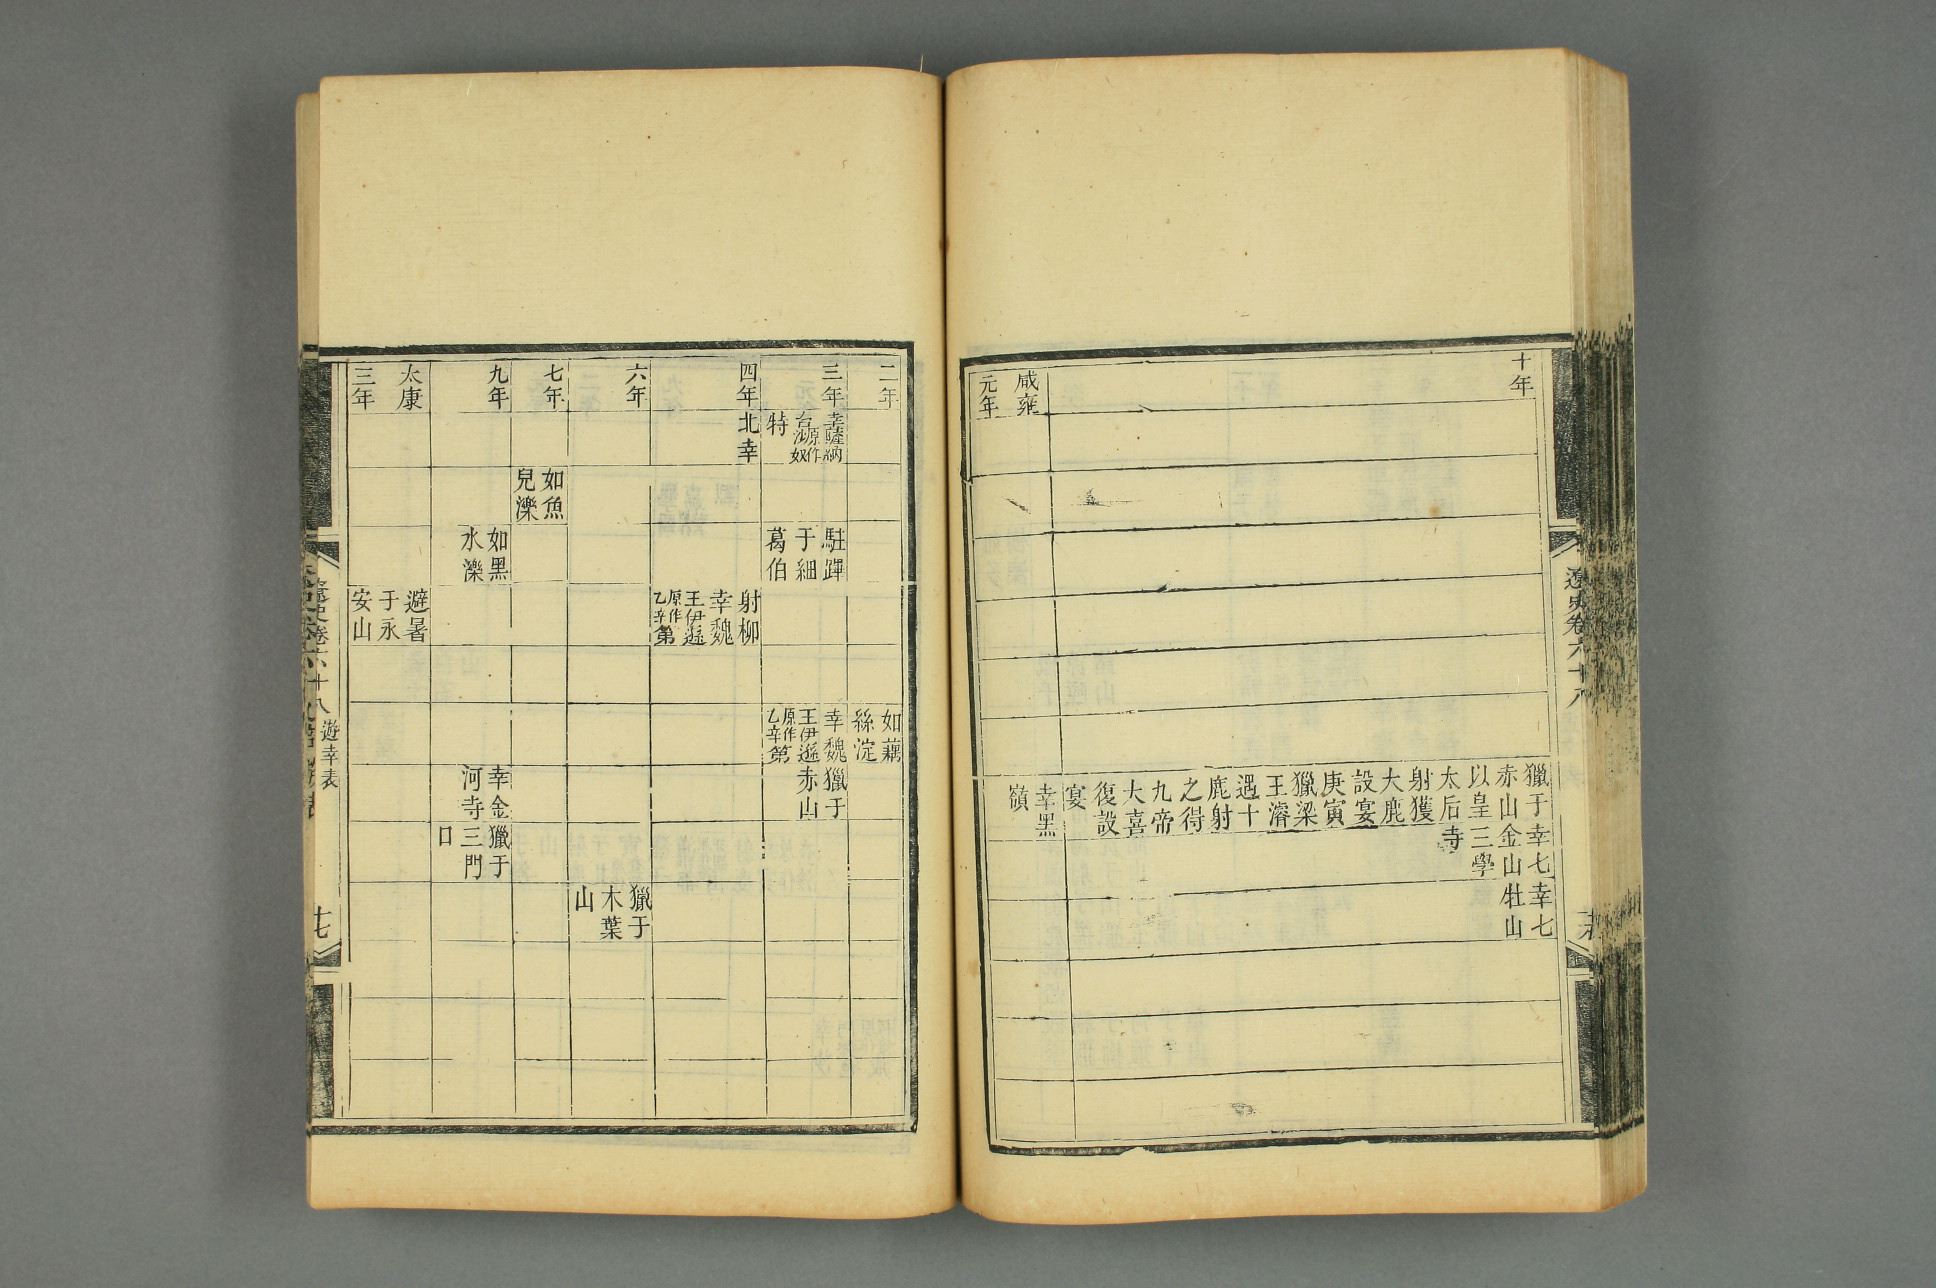 遼史卷六十八
十年
獵于
赤山
以皇
太后
射獲
大鹿
設宴
庚寅
獵梁
王濬
遇十
鹿射
之得
九帝
大喜
復設
宴
幸七
金山
三學
寺
幸七
牡山
咸雍
元年
幸黑
嶺
二年
如藕
絲淀
三年
幸薩納
台原作
沙奴
特
駐蹕
于細
葛伯
幸魏
王伊遜
原作
乙辛
第
獵于
赤山
四年
北幸
射柳
幸魏
王伊遜
原作
乙辛
第
六年
獵于
木葉
山
七年
如魚
兒濼
九年
如黑
水濼
幸金
河寺
獵于
三門
口
太康
三年
避暑
于永
安山
遼史卷六十八 遊幸表
十七